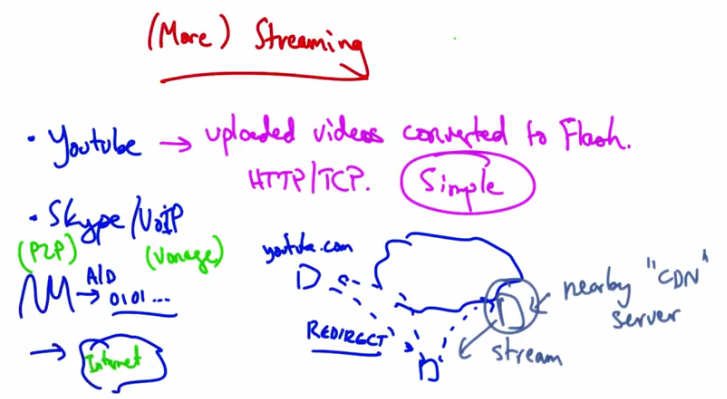 (More) Streaming
• Youtube → uploaded videos converted to Flash.
HTTP/TCP. Simple
• Skype/VoIP
(P2P) (Vonage)
A/D
→ 0101...
→ Internet
youtube.com
REDIRECT
stream
nearby "CDN"
server